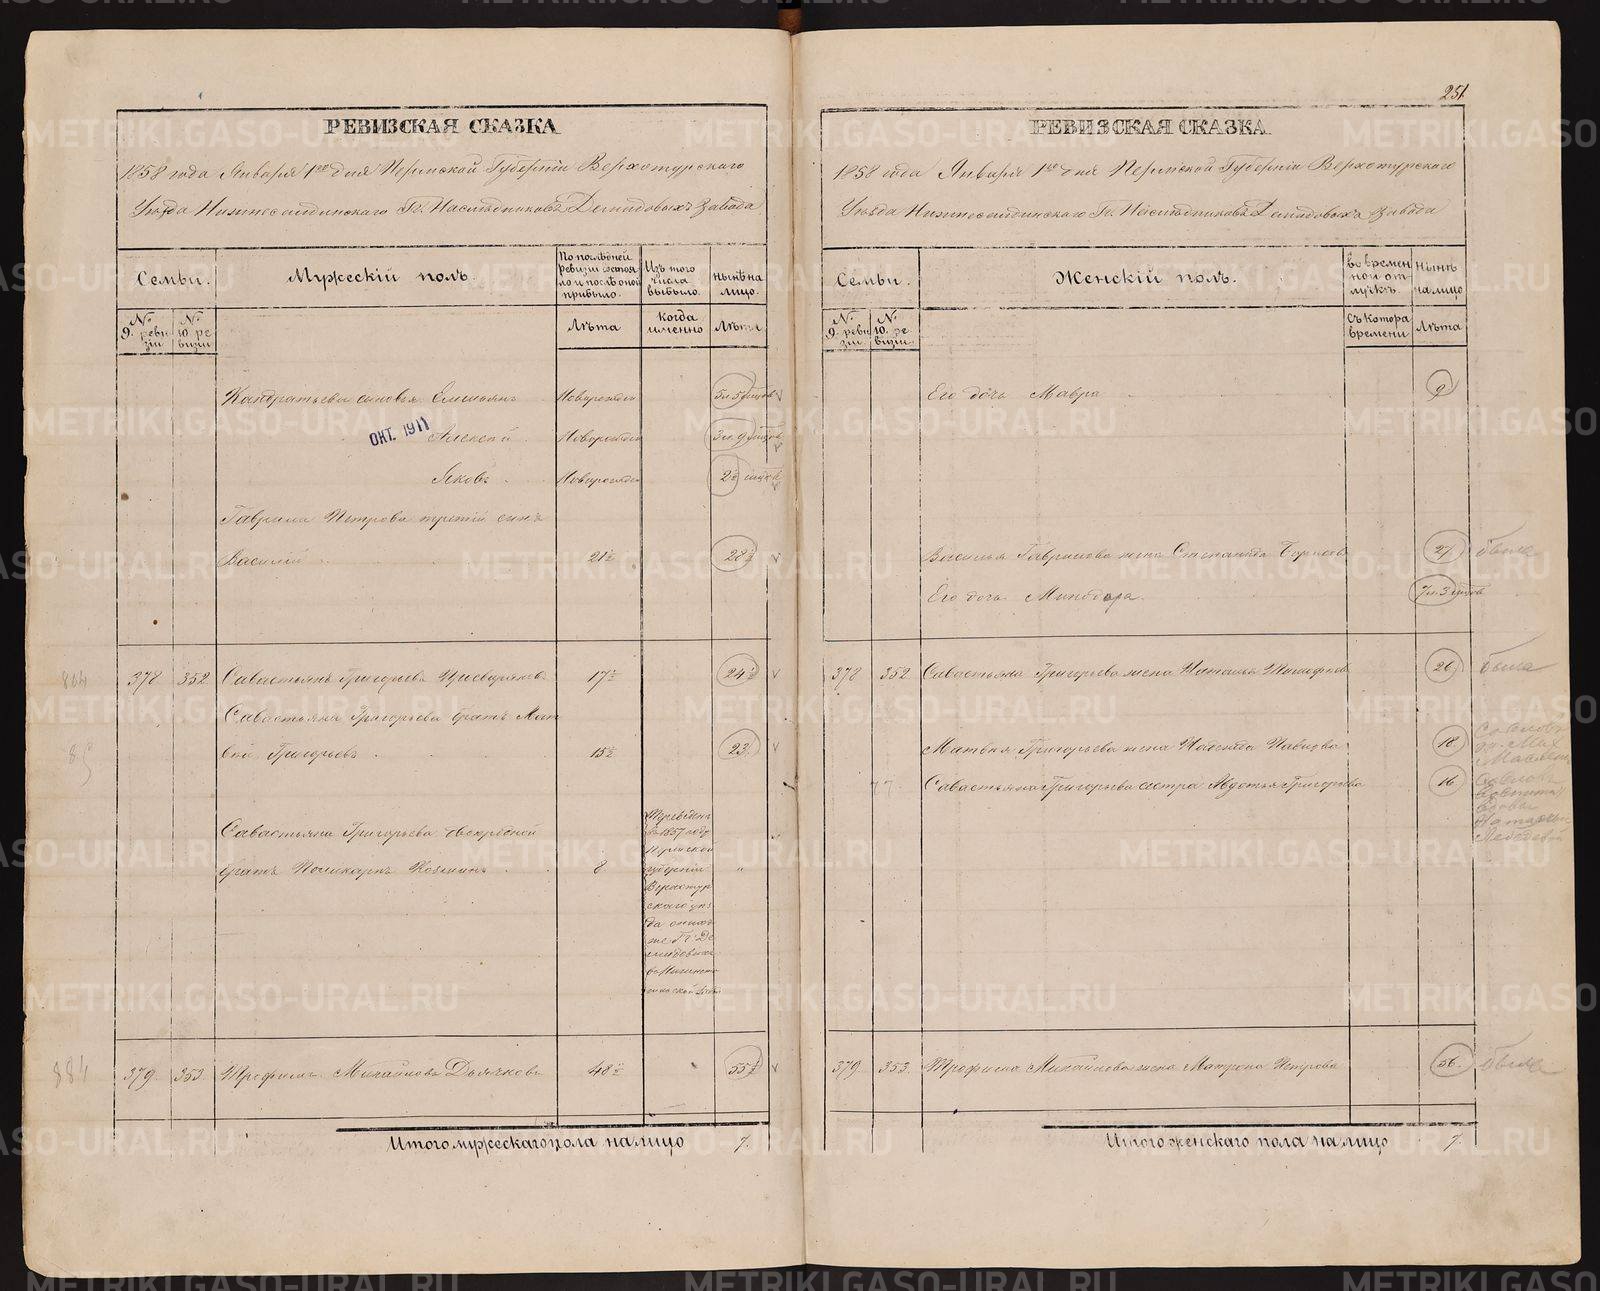 251
РЕВИЗСКАЯ СКАЗКА
1858 года Января 1го дня Пермской Губерніи Верхотурскаго
Уѣзда Нижнесалдинскаго Гг. Наслѣдниковъ Демидовыхъ Завода
Семьи.
Мужескій полъ.
По послѣдней ревизіи состояло и послѣ оной прибыло.
Изъ того числа выбыло.
нынѣ на лицо.
№ 9. ревизіи
№ 10. ревизіи
Лѣта
Когда именно
Лѣта
Кандратьева сыновья Емельянъ Новорожден 5 и 5 мцовъ
ОКТ. 1911
Алексей Новорожден 3 и 9 мцовъ
Яковъ Новорожден 2½
Гаврила Петрова третій сынъ
Василій 21½ 28½
378 352 Савастьянъ Григорьевъ 17½ 24½
Савастьяна Григорьева братъ Мат
вей Григорьевъ 15½ 23
Савастьяна Григорьева
братъ Поликарпъ 8 "
Переведенъ
въ 1857 году
Пермской
губерніи
Верхотур
скаго уѣз
да
же Гг. Де
мидовыхъ
884 379. 353. Трофимъ Михайловъ Дьячковъ 48½ 55½
Итого мужескаго пола на лицо 7.
РЕВИЗСКАЯ СКАЗКА
1858 года Января 1го дня Пермской Губерніи Верхотурскаго
Уѣзда Нижнесалдинскаго Гг. Наслѣдниковъ Демидовыхъ Завода
Семьи.
Женскій полъ.
во временной отлучкѣ
нынѣ на лицо
№ 9. ревизіи
№ 10. ревизіи
Съ котора времени
Лѣта
Его дочь Мавра 9
Василья Гаврилова жена Степанида 27
Его дочь Минодора 7 и 3 мцовъ
378 352 Савастьяна Григорьева жена Наталья 26
Матвѣя Григорьева жена Павлова 18
Савастьяна Григорьева сестра Авдотья Григорьева 16
379 353. Трофима Михайлова жена Матрена Петрова 56.
Итого женскаго пола на лицо 7.
METRIKI.GASO-URAL.RU